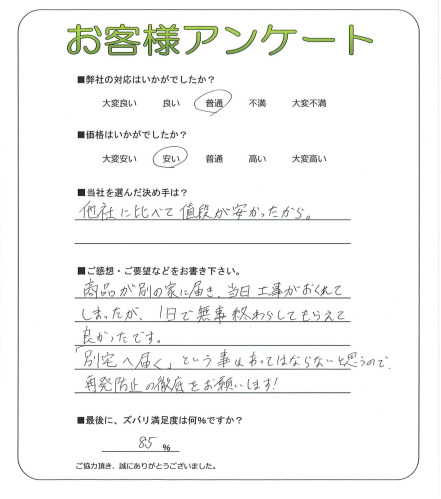 お客様アンケート
■弊社の対応はいかがでしたか？
大変良い 良い 普通 不満 大変不満
■価格はいかがでしたか？
大変安い 安い 普通 高い 大変高い
■当社を選んだ決め手は？
他社に比べて値段が安かったから。
■ご感想・ご要望などをお書き下さい。
商品が別の家に届き、当日工事がおくれて
しまったが、1日で無事終わらしてもらえて
良かったです。
「別宅へ届く」という事はあってはならないと思うので、
再発防止の徹底をお願いします!
■最後に、ズバリ満足度は何%ですか？
85 %
ご協力頂き、誠にありがとうございました。